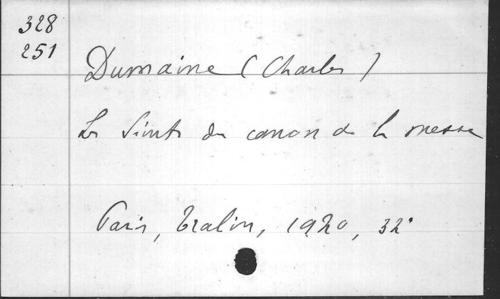 328
251
Dumaine (Charles)
Les Saints du canon de la messe
Paris, Tralin, 1920, 32°